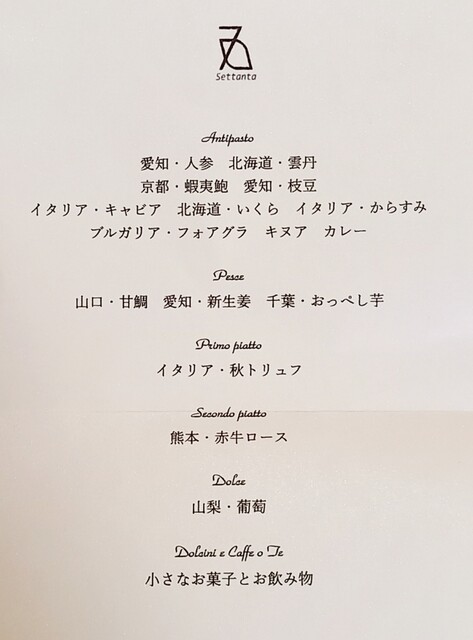 Settanta
Antipasto
愛知・人参　北海道・雲丹
京都・蝦夷鮑　愛知・枝豆
イタリア・キャビア　北海道・いくら　イタリア・からすみ
ブルガリア・フォアグラ　キヌア　カレー
Pesce
山口・甘鯛　愛知・新生姜　千葉・おっぺし芋
Primo piatto
イタリア・秋トリュフ
Secondo piatto
熊本・赤牛ロース
Dolce
山梨・葡萄
Dolcini e Caffe o Te
小さなお菓子とお飲み物